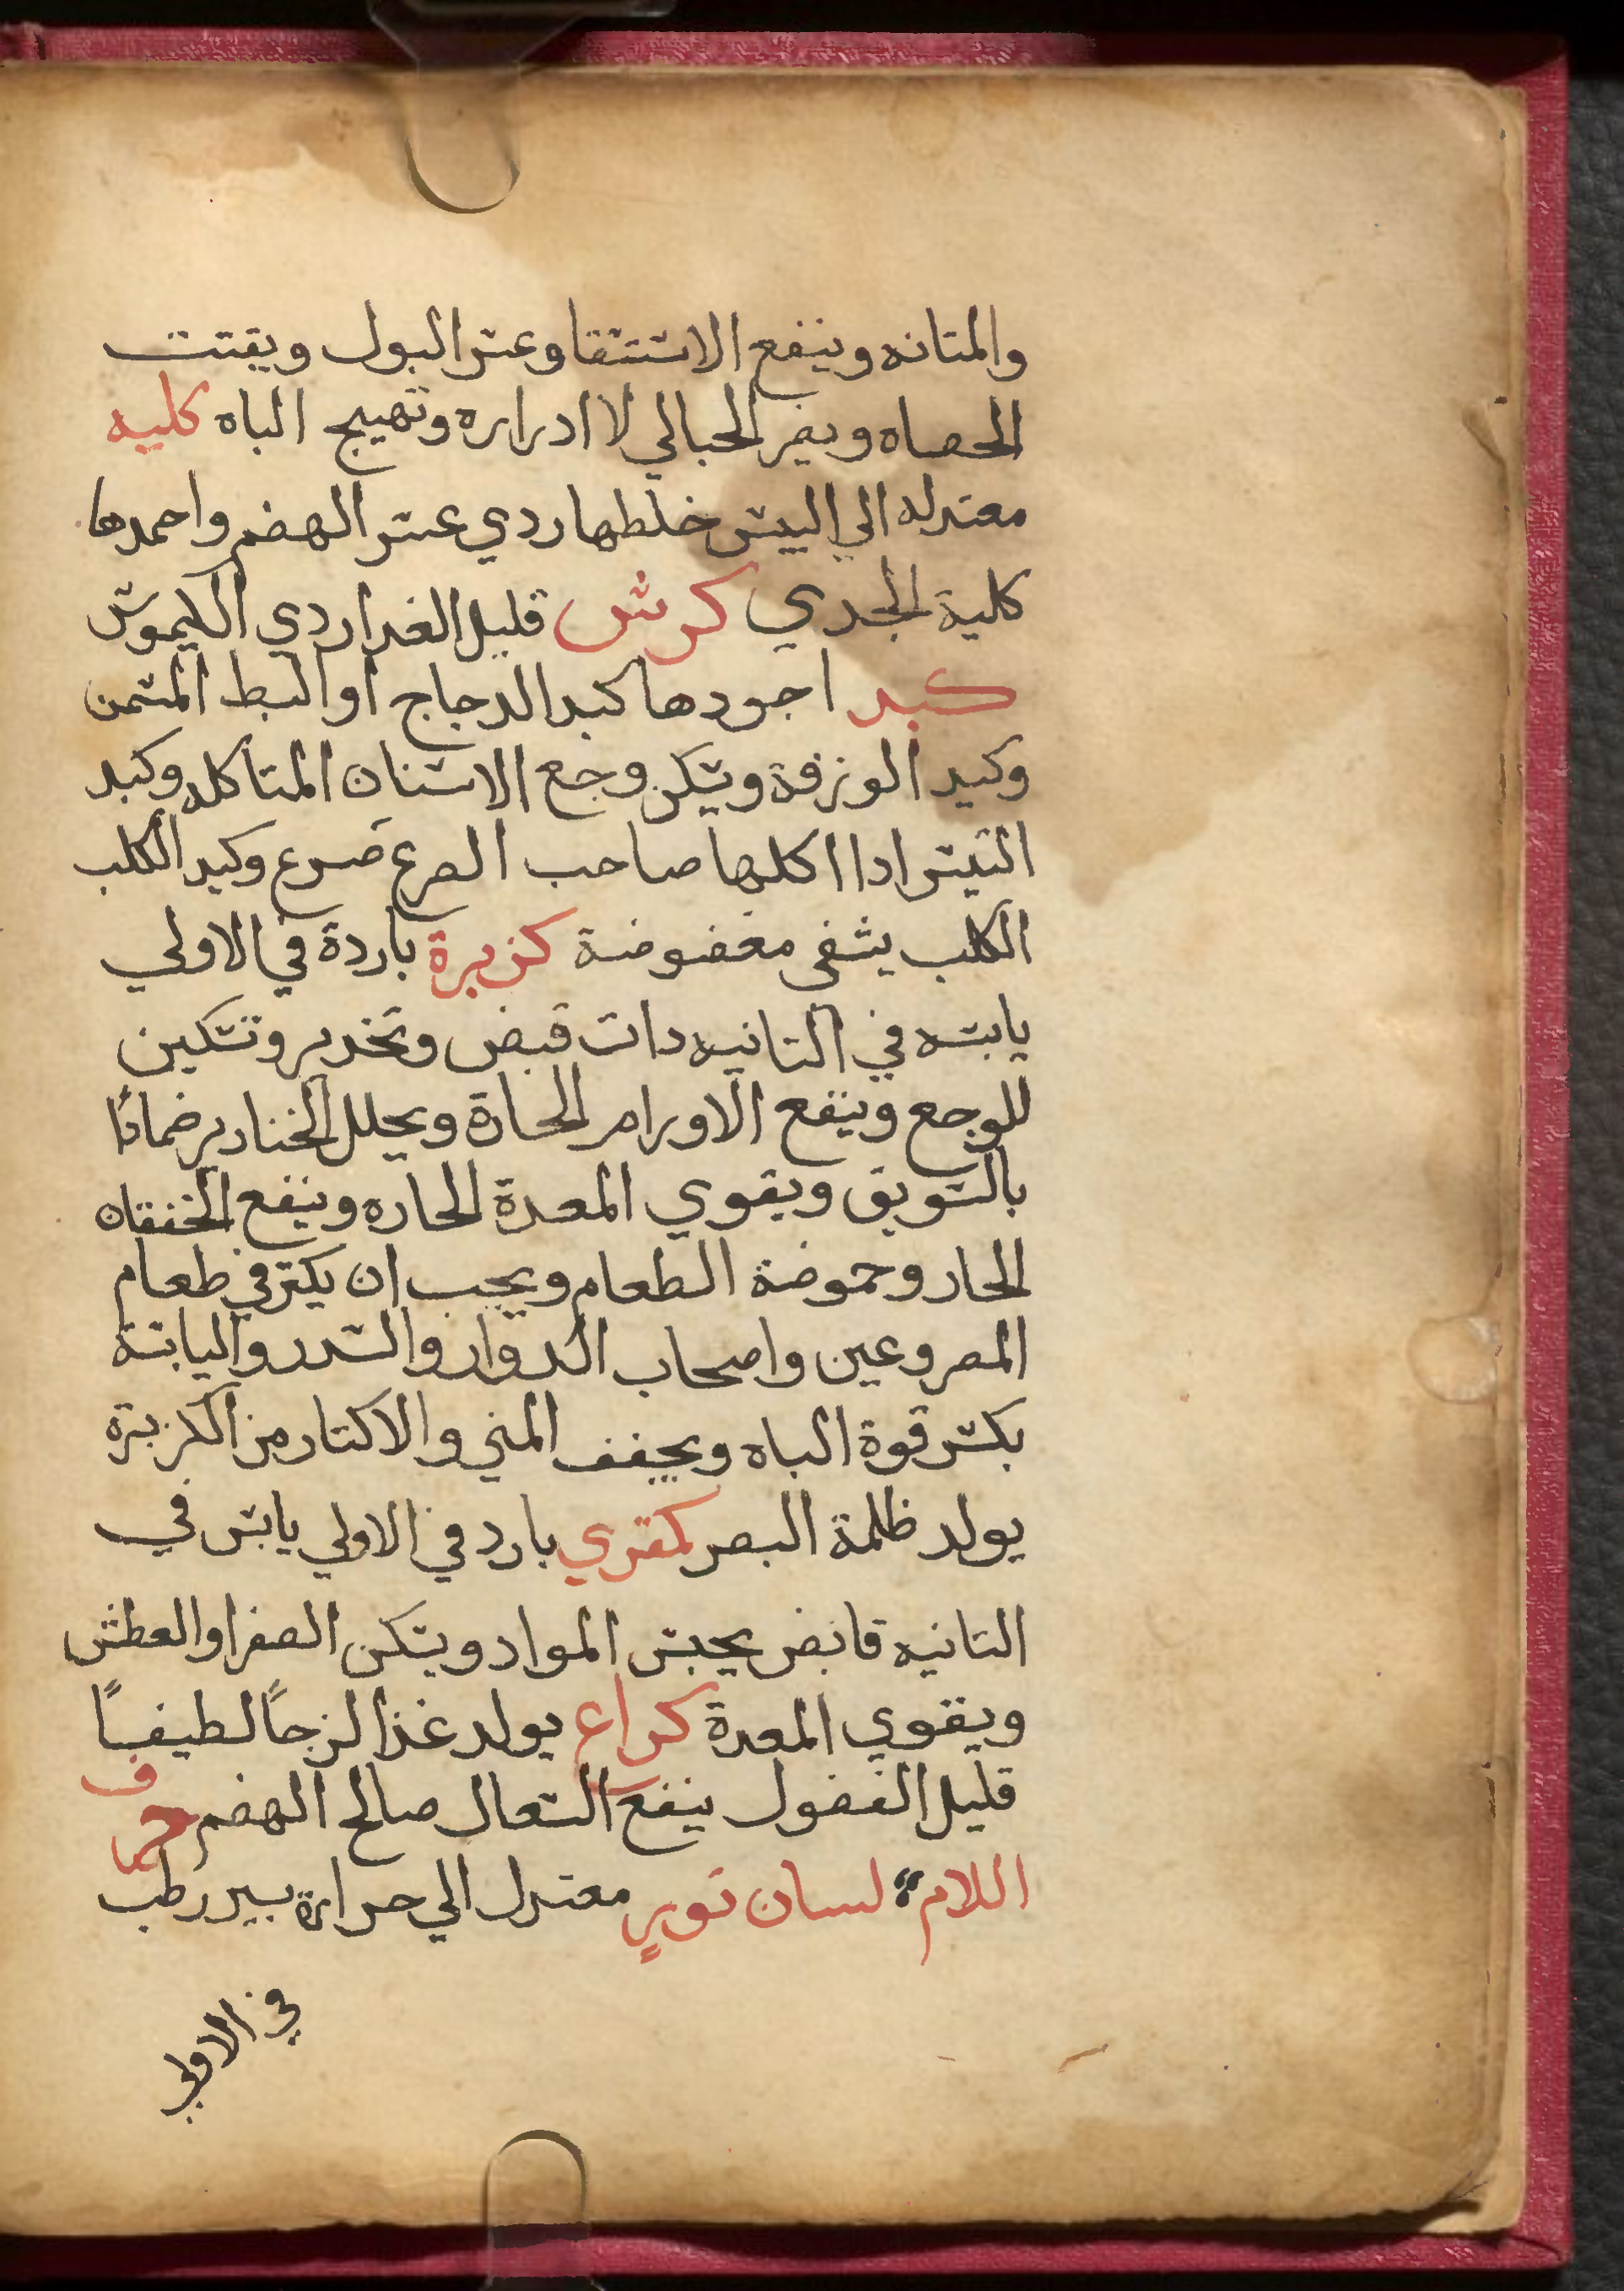 والمتانه وينفع الاستسقا وعسر البول ويفتت
الحصاه ويضر الحبالي لا ادراره وتهييج الباه كليه
معتدله الي اليبس خلطها ردي عسر الهضم واحمدها
كلية الجدي كرش قليل الغدا ردي الكيموس
كبد اجودها كبد الدجاج او البط المسمن
وكبد الوزغة ويسكن وجع الاسنان المتاكله وكبد
التيس ادا اكلها صاحب الصرع صرع وكبد الكلب
الكلب يشفي معضوضة كزبرة باردة في الاولي
يابسه في التانيه دات قبض وتخدير وتسكين
للوجع وينفع الاورام الحارة ويحلل الخنازير ضمادًا
بالسويق ويقوي المعدة الحاره وينفع الخفقان
الحار وحموضة الطعام ويجب ان يكتر في طعام
المصروعين واصحاب الدوار والسدر واليابسة
يكسر قوة الباه ويجفف المني والاكتار من الكزبرة
يولد ظلمة البصر كمتري بارد في الاولي يابس في
التانيه قابض يحبس المواد ويسكن الصفرا والعطش
ويقوي المعدة كراع يولد غذا لزجاً لطيفاً
قليل الفضول ينفع السعال صالح الهضم حرف
اللام لسان تور معتدل الي حرارة يسير رطب
في الاولي